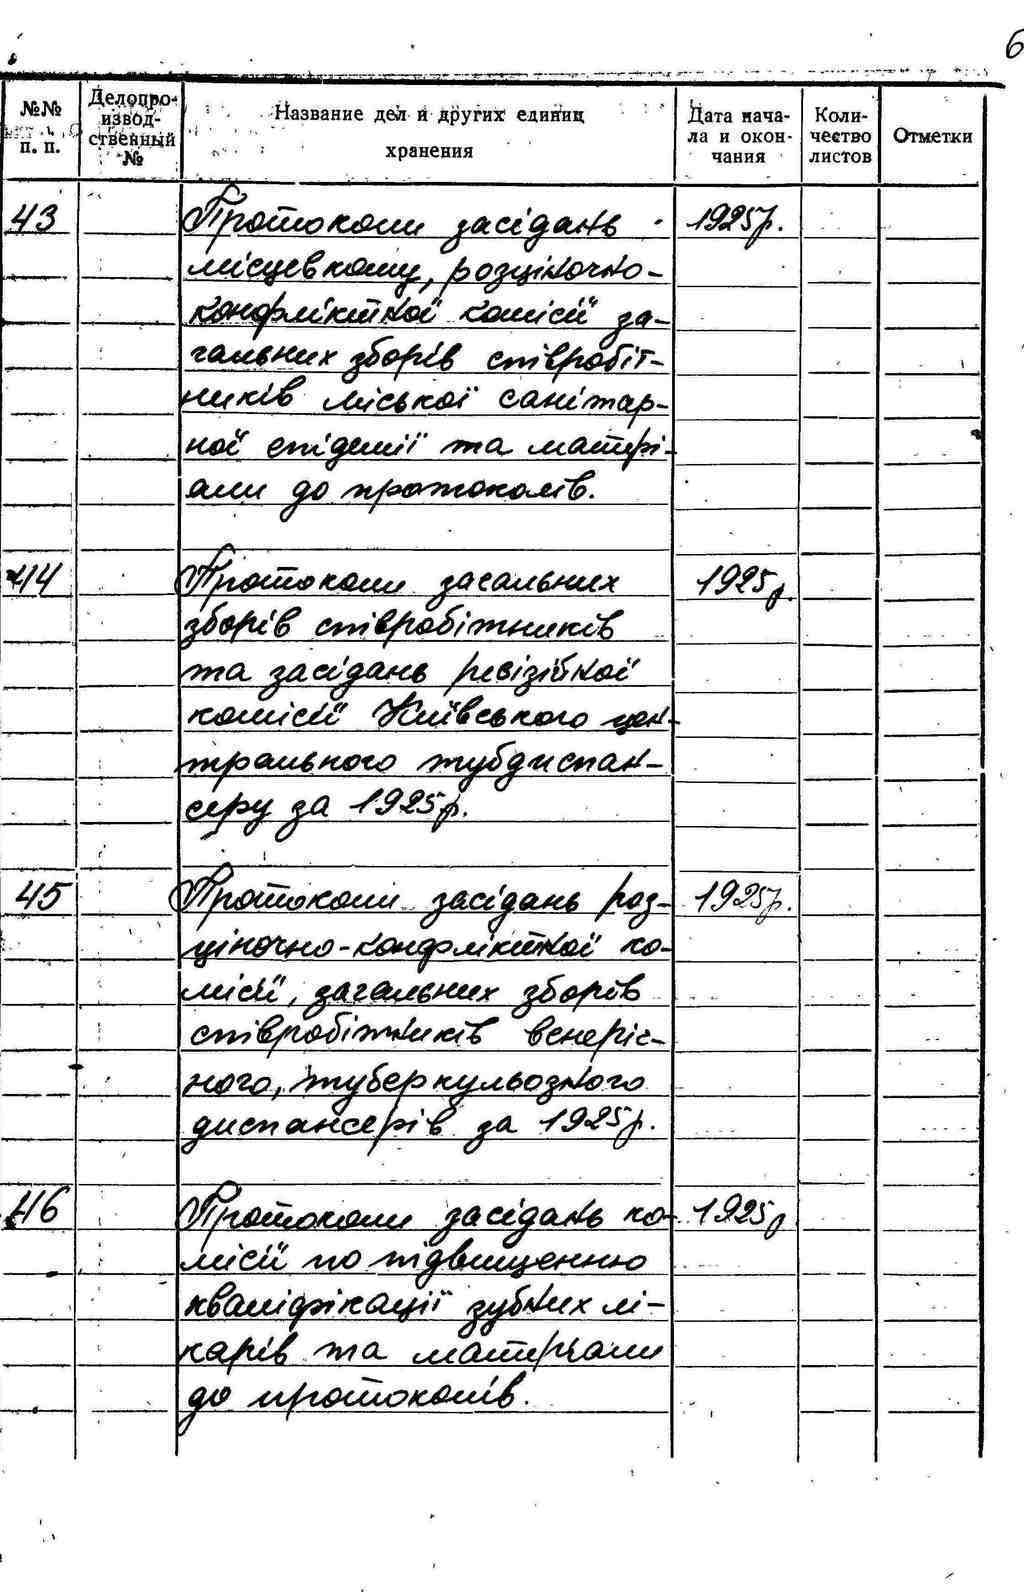 6
№№ п. п.
Делопро-
извод-
ственный
№
Название дел и других единиц
хранения
Дата нача-
ла и окон-
чания
Коли-
чество
листов
Отметки
43 Протоколи засідань 1925р.
місцевкому, розціночно-
конфліктної комісії за-
гальних зборів співробіт-
ників міської санітар-
ної епідемії та матері-
али до протоколів.
44 Протоколи загальних 1925р.
зборів співробітників
та засідань ревізійної
комісії Київського цен-
трального тубдиспан-
серу за 1925р.
45 Протоколи засідань роз- 1925р.
ціночно-конфліктної ко-
місії, загальних зборів
співробітників венеріч-
ного, туберкульозного
диспансерів за 1925р.
46 Протоколи засідань ко- 1925р
місії по підвищенню
кваліфікації зубних лі-
карів та матеріали
до протоколів.